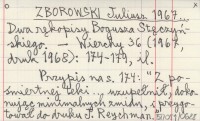 ZBOROWSKI Juliusz 1967...
Dwa rękopisy Bogusza Stęczyń-
skiego. — Wierchy 36 (1967,
druk 1968): 174-179, il.
Przypis na s. 174: "Z po-
śmiertnej teki... uzupełnił, doko-
nując minimalnych zmian, i przygo-
tował do druku J. Reychman.